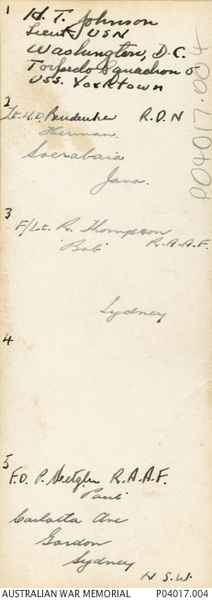 1 H. T. Johnson
Lieut, USN
Washington, D.C.
Torpedo Squadron 5
USS. Yorktown
2 Lt. H.D. R.D.N
Herman
Soerabaia
Java.
3 F/Lt. R. Thompson
"Bob" R.A.A.F.
Sydney
4
5 F.O. P. Metzler R.A.A.F.
"Paul"
Carlotta Ave
Gordon
Sydney
N.S.W.
P04017.004
AUSTRALIAN WAR MEMORIAL P04017.004